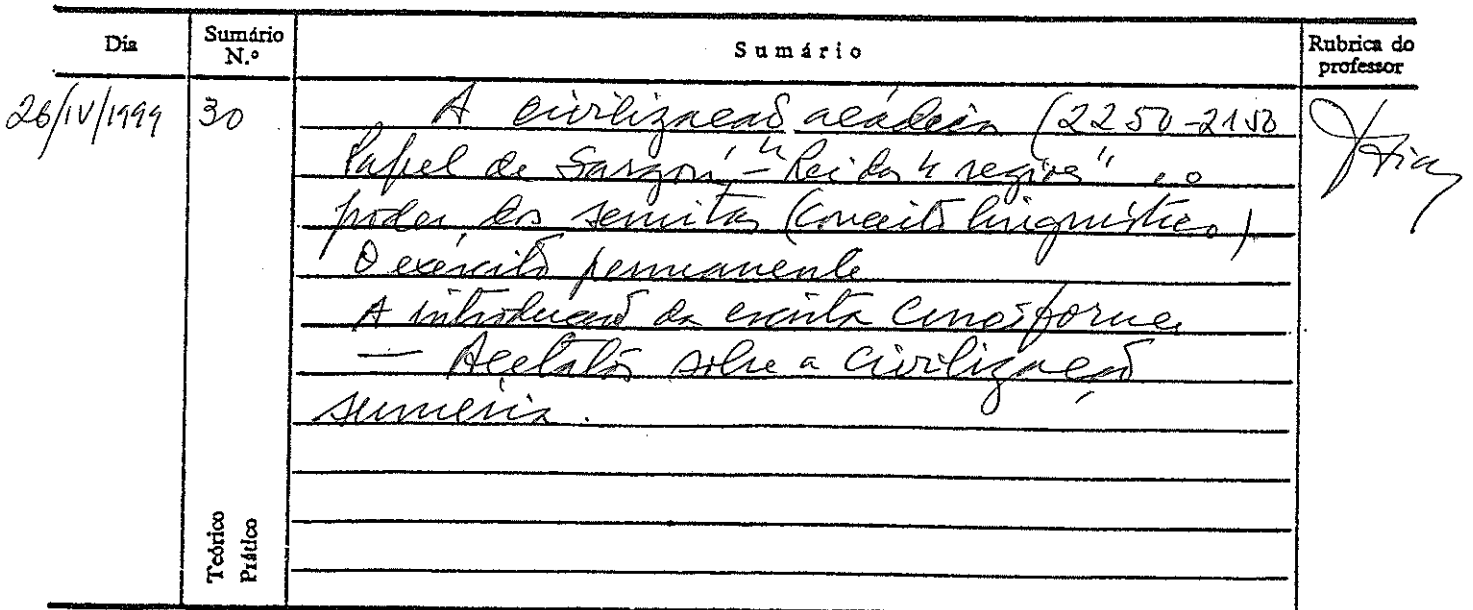 Dia
Sumário N.º
Sumário
Rubrica do professor
26/IV/1999
30
A civilização acádica (2250-2150
Papel de Sargon - "Rei das 4 regiões"
poder dos semitas (conceito linguístico)
O exército permanente
A introdução da escrita cuneiforme
— Acetatos sobre a civilização
suméria.
Teórico
Prático